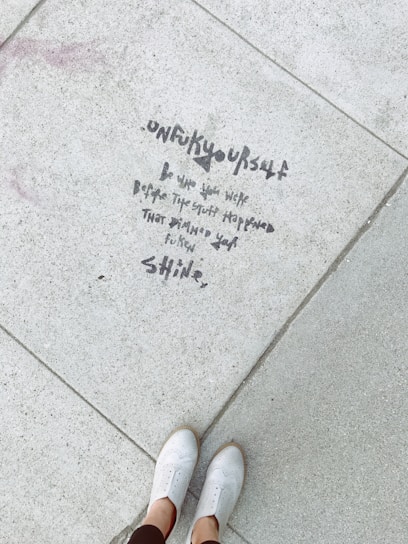 .UNFUKYOURSELF
Be WHO YOU WERE
BEFORE THE STUFF HAPPENED
THAT DIMMED YOUR
FUKEN
SHINE.